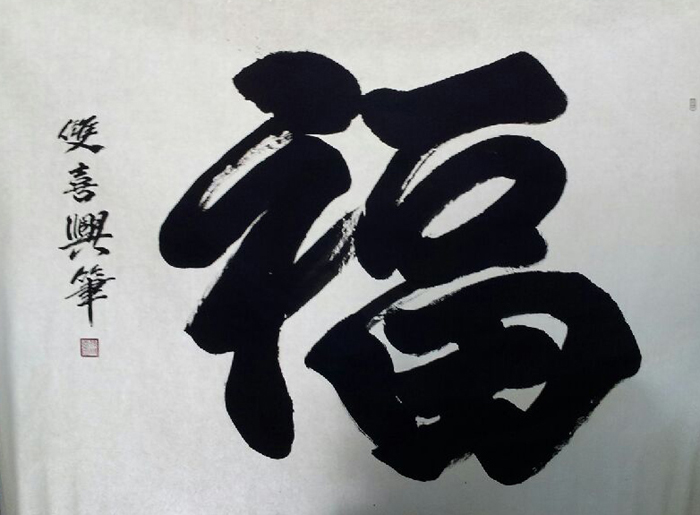 福
雙喜興筆